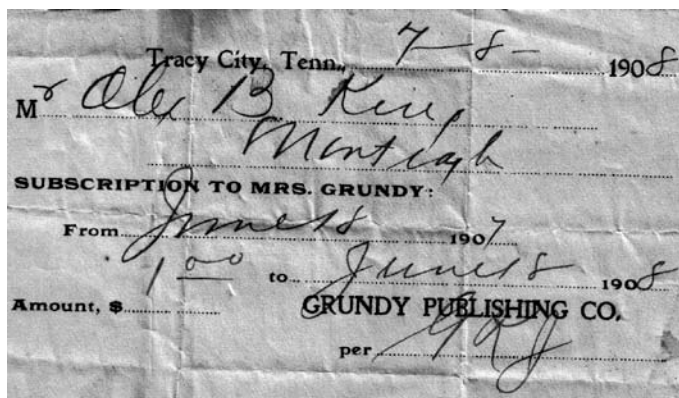 Tracy City, Tenn., 7-8- 1908
Mr B King
Monteagle
SUBSCRIPTION TO MRS. GRUNDY:
From June 18 1907
1 00 to June 18 1908
Amount, $ GRUNDY PUBLISHING CO.
per